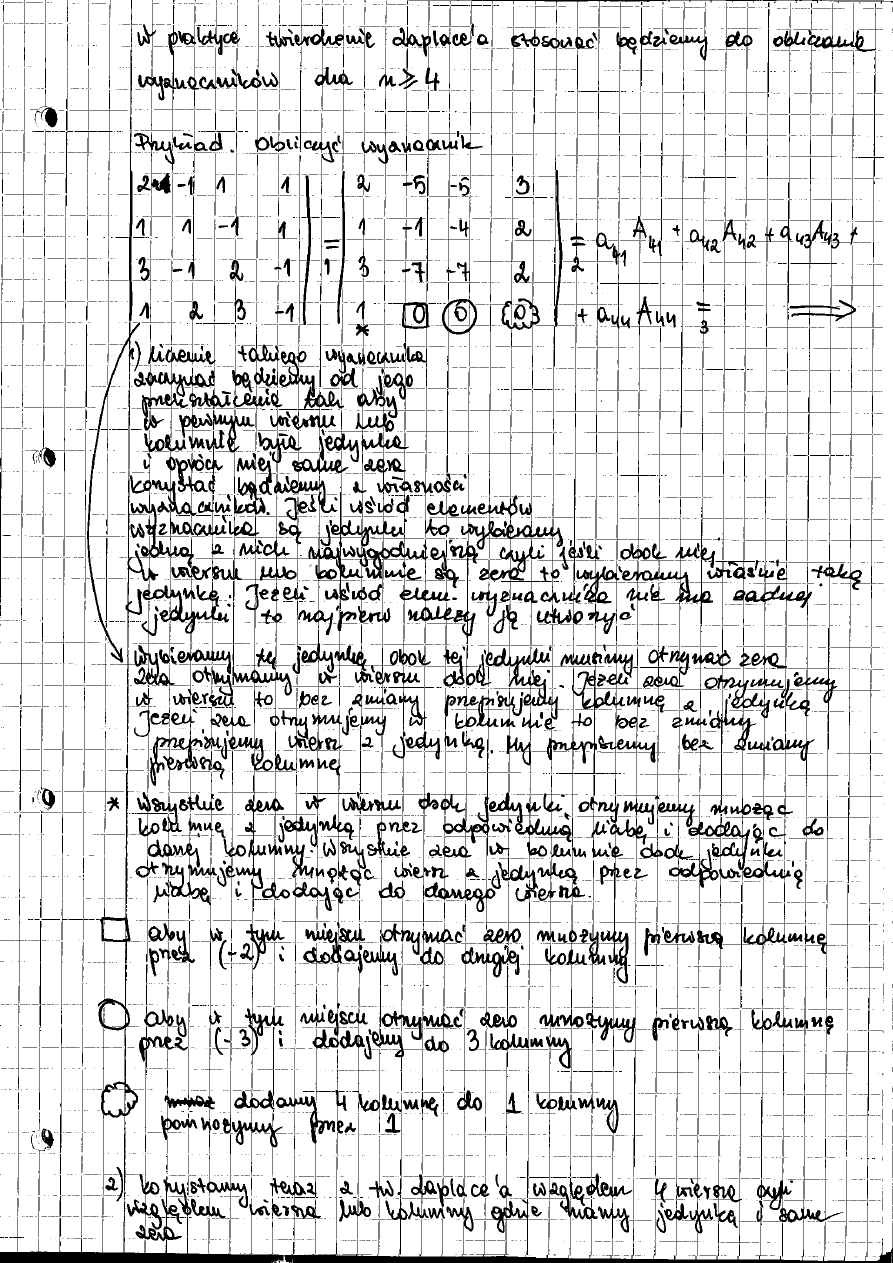 W praktyce twierdzenie Laplace'a stosować będziemy do obliczania
wyznaczników dla n ≥ 4
Przykład. Obliczyć wyznacznik
| 2 -1 1 1 | | 2 -5 -5 3 |
| 1 1 -1 1 | = | 1 -1 -4 2 | = a41 A41 + a42 A42 + a43 A43 +
| 3 -1 2 -1 | 1 | 3 -7 -7 2 | 2
| 1 2 3 -1 | | 1 0 0 0 | + a44 A44 = 3 ⟹
*
1) liczenie takiego wyznacznika
zaczynać będziemy od jego
przekształcenia tak aby
w pewnym wierszu lub
kolumnie była jedynka
i oprócz niej same zera
korzystać będziemy z własności
wyznaczników. Jeśli wśród elementów
wyznacznika są jedynki to wybieramy
jedną z nich najwygodniejszą czyli jeśli obok niej
w wierszu lub kolumnie są zera to wybieramy właśnie taką
jedynkę. Jeżeli wśród elem. wyznacznika nie ma żadnej
jedynki to najpierw należy ją utworzyć
wybieramy tę jedynkę obok tej jedynki musimy otrzymać zera
zera otrzymamy w wierszu obok niej. Jeżeli zera otrzymujemy
w wierszu to bez zmiany przepisujemy kolumnę z jedynką
Jeżeli zera otrzymujemy w kolumnie to bez zmiany
przepisujemy wiersz z jedynką. My przepiszemy bez zmiany
pierwszą kolumnę
* Wszystkie zera w wierszu obok jedynki otrzymujemy mnożąc
kolumnę z jedynką przez odpowiednią liczbę i dodając do
danej kolumny. Wszystkie zera w kolumnie obok jedynki
otrzymujemy mnożąc wiersz z jedynką przez odpowiednią
liczbę i dodając do danego wiersza.
aby w tym miejscu otrzymać zero mnożymy pierwszą kolumnę
przez (-2) i dodajemy do drugiej kolumny
aby w tym miejscu otrzymać zero mnożymy pierwszą kolumnę
przez (-3) i dodajemy do 3 kolumny
dodamy 4 kolumnę do 1 kolumny
pomnożymy przez 1
2) korzystamy teraz z tw. Laplace'a względem 4 wiersza czyli
względem wiersza lub kolumny gdzie mamy jedynkę i same
zera